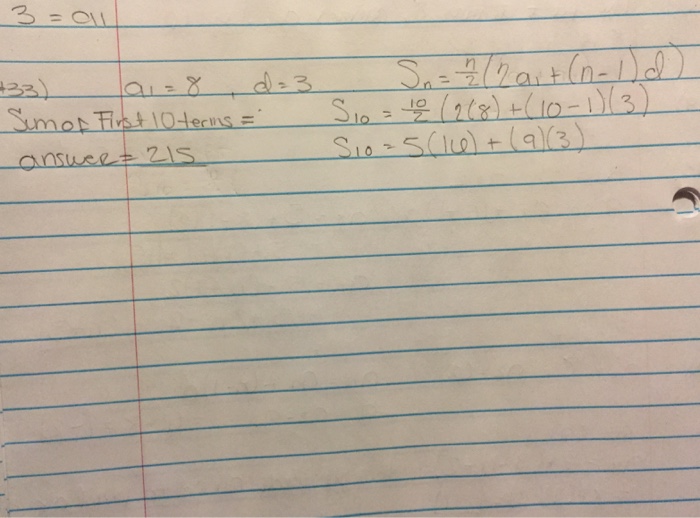 3 = a11
#33) a1 = 8 , d = 3 Sn = n/2 (2a1 + (n-1)d)
Sum of First 10 terms = S10 = 10/2 (2(8) + (10-1)(3)
answer = 215 S10 = 5(16) + (9)(3)